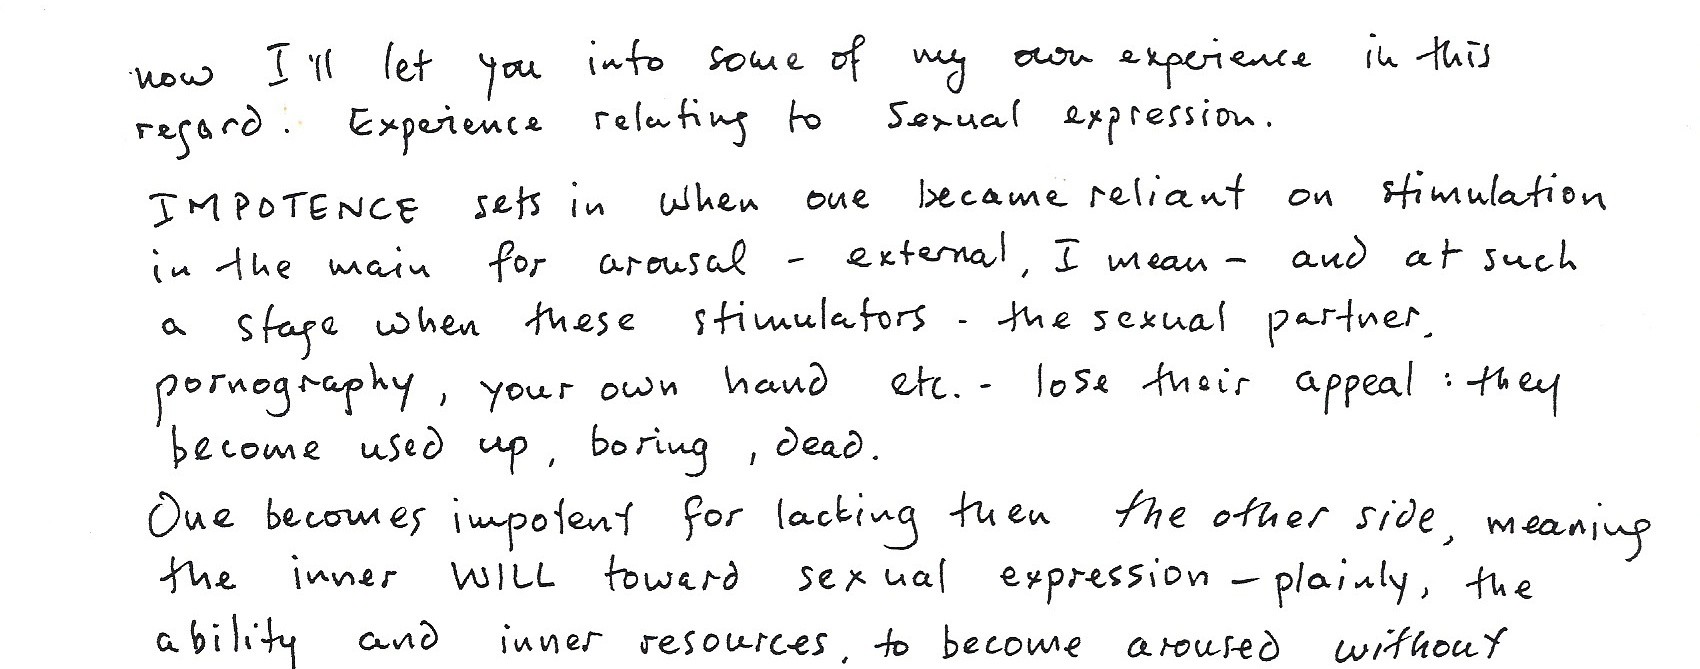 now I'll let you into some of my own experience in this
regard. Experience relating to Sexual expression.
IMPOTENCE sets in when one became reliant on stimulation
in the main for arousal - external, I mean - and at such
a stage when these stimulators - the sexual partner,
pornography, your own hand etc. - lose their appeal : they
become used up, boring, dead.
One becomes impotent for lacking then the other side, meaning
the inner WILL toward sexual expression - plainly, the
ability and inner resources, to become aroused without